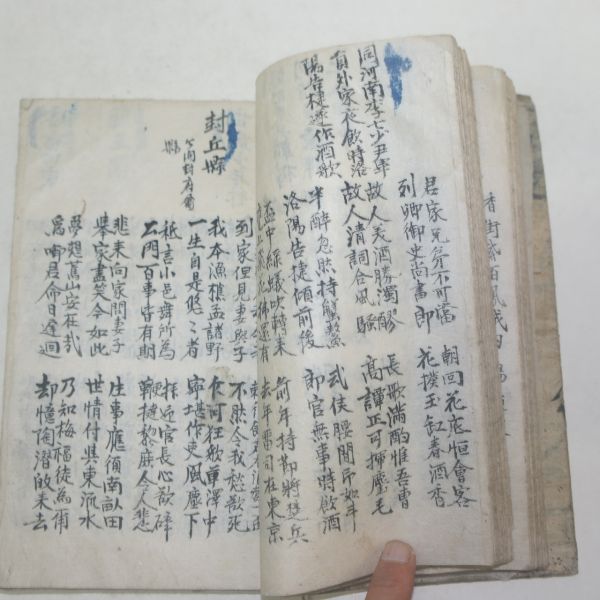 君家兄弟不可當 朝回花底恒會客
列卿御史尚書郎 花撲玉缸春酒香
同河南李七少尹畢
員外家夜飲時洛
陽告捷遂作酒歌
故人美酒勝濁醪 長歌滿酌惟吾曹
故人清詞合風騷 高譚正可揮麈毛
半醉忽然持蟹螯 武侯腰間印如斗
洛陽告捷傾前後 郎官無事時飲酒
盃中綠蟻吹轉來 前年持節將楚兵
去年留司在東京
封丘縣
到家但見妻與子 不然令我愁欲死
我本漁樵孟諸野 乍可狂歌草澤中
一生自是悠々者 寧堪作吏風塵下
秪言小邑無所為 拜迎官長心欲碎
公門百事皆有期 鞭撻黎庶令人悲
悲來向家問妻子 生事應須南畝田
舉家盡笑今如此 世情付與東流水
夢想舊山安在哉 乃知梅福徒為爾
為啣君命日遲迴 却憶陶潛歸來去